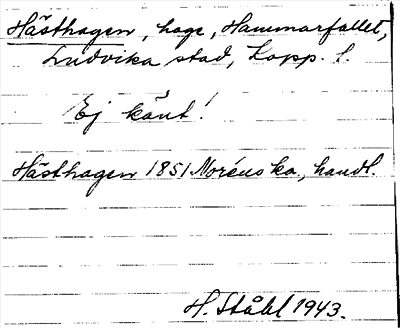 Hästhagen, hage, Hammarfallet,
Ludvika stad, Kopp. l.
Ej känt!
Hästhagen 1851 Norénska, handl.
H. Ståhl 1943.